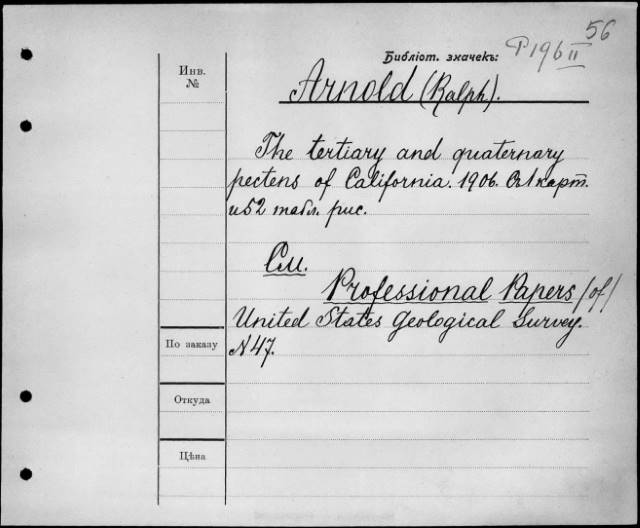 56
P196 II
Библіот. значекъ:
Инв. №
Arnold (Ralph).
The tertiary and quaternary
pectens of California. 1906. Съ 1 карт.
и 52 табл. рис.
См.
Professional Papers /of/
United States Geological Survey.
N47.
По заказу
Откуда
Цѣна